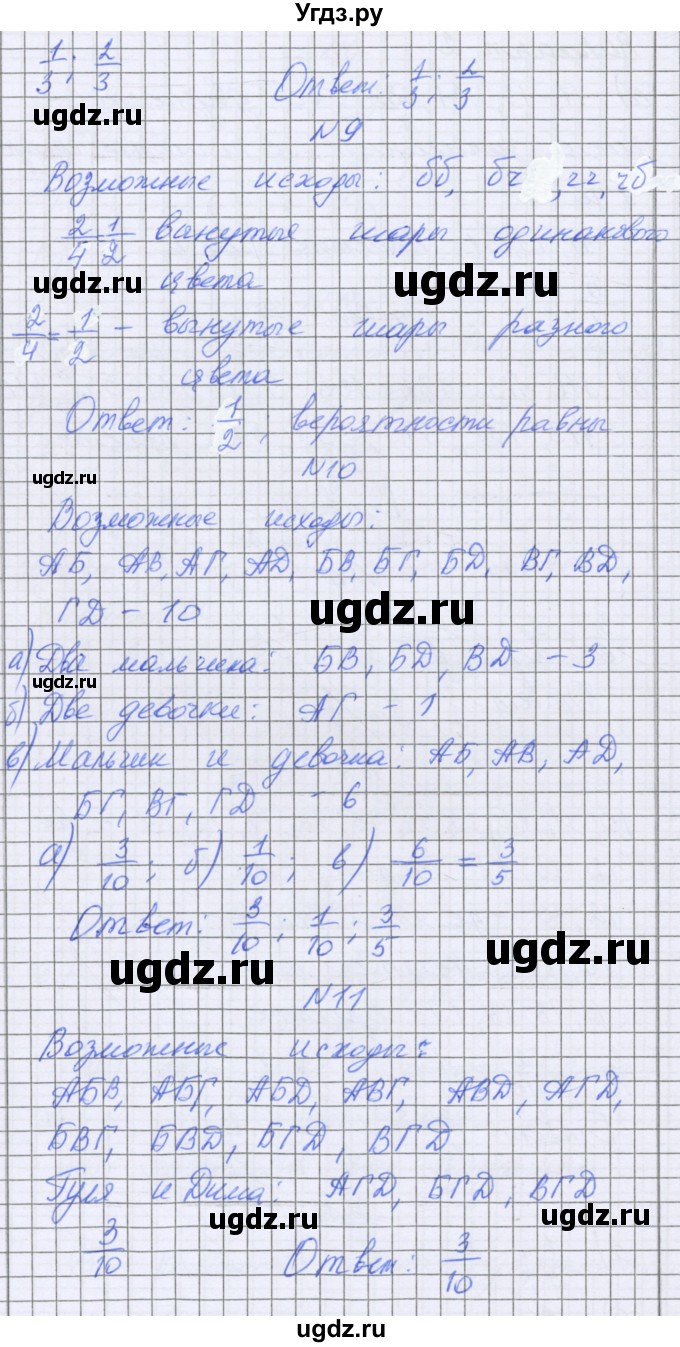 Угдз.ру
1/3; 2/3
Ответ: 1/3; 2/3
ugdz.ru
N9
Возможные исходы: бб, бч, чч, чб
2/4 1/2 - ванутые шары одинакового
цвета
ugdz.ru ugdz.ru
2/4 = 1/2 - вынутые шары разного
цвета
Ответ: 1/2; вероятности равны
N10
ugdz.ru
Возможные исходы:
АБ, АВ, АГ, АД, БВ, БГ, БД, ВГ, ВД,
ГД - 10
ugdz.ru
а) Два мальчика: БВ, БД, ВД - 3
ugdz.ru
б) Две девочки: АГ - 1
в) Мальчик и девочка: АБ, АВ, АД,
БГ, ВГ, ГД - 6
а) 3/10; б) 1/10; в) 6/10 = 3/5
Ответ: 3/10; 1/10; 3/5
ugdz.ru ugdz.ru
N11
Возможные исходы:
АБВ, АБГ, АБД, АВГ, АВД, АГД,
БВГ, БВД, БГД, ВГД
Гуля и Дима: АГД, БГД, ВГД
ugdz.ru ugdz.ru
3/10
Ответ: 3/10
ugdz.ru